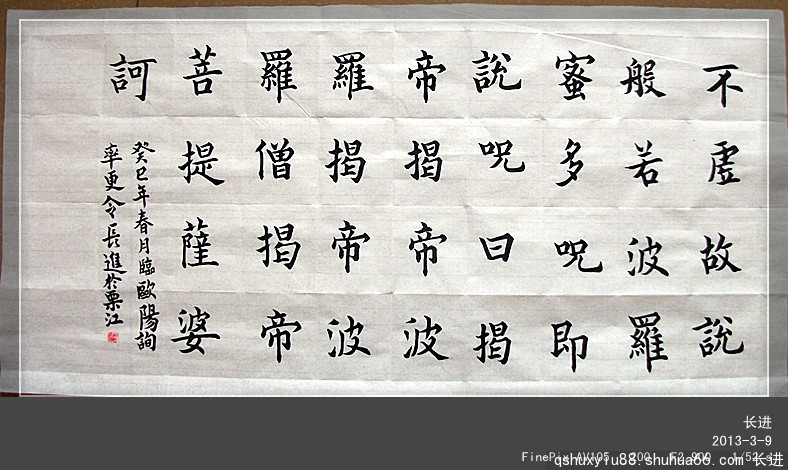 不虛故說
般若波羅
蜜多呪即
說呪曰揭
帝揭帝波
羅揭帝波
羅僧揭帝
菩提薩婆
訶
癸巳年春月臨歐陽詢
率更令長進於栗江
长进
2013-3-9
FinePix
长进